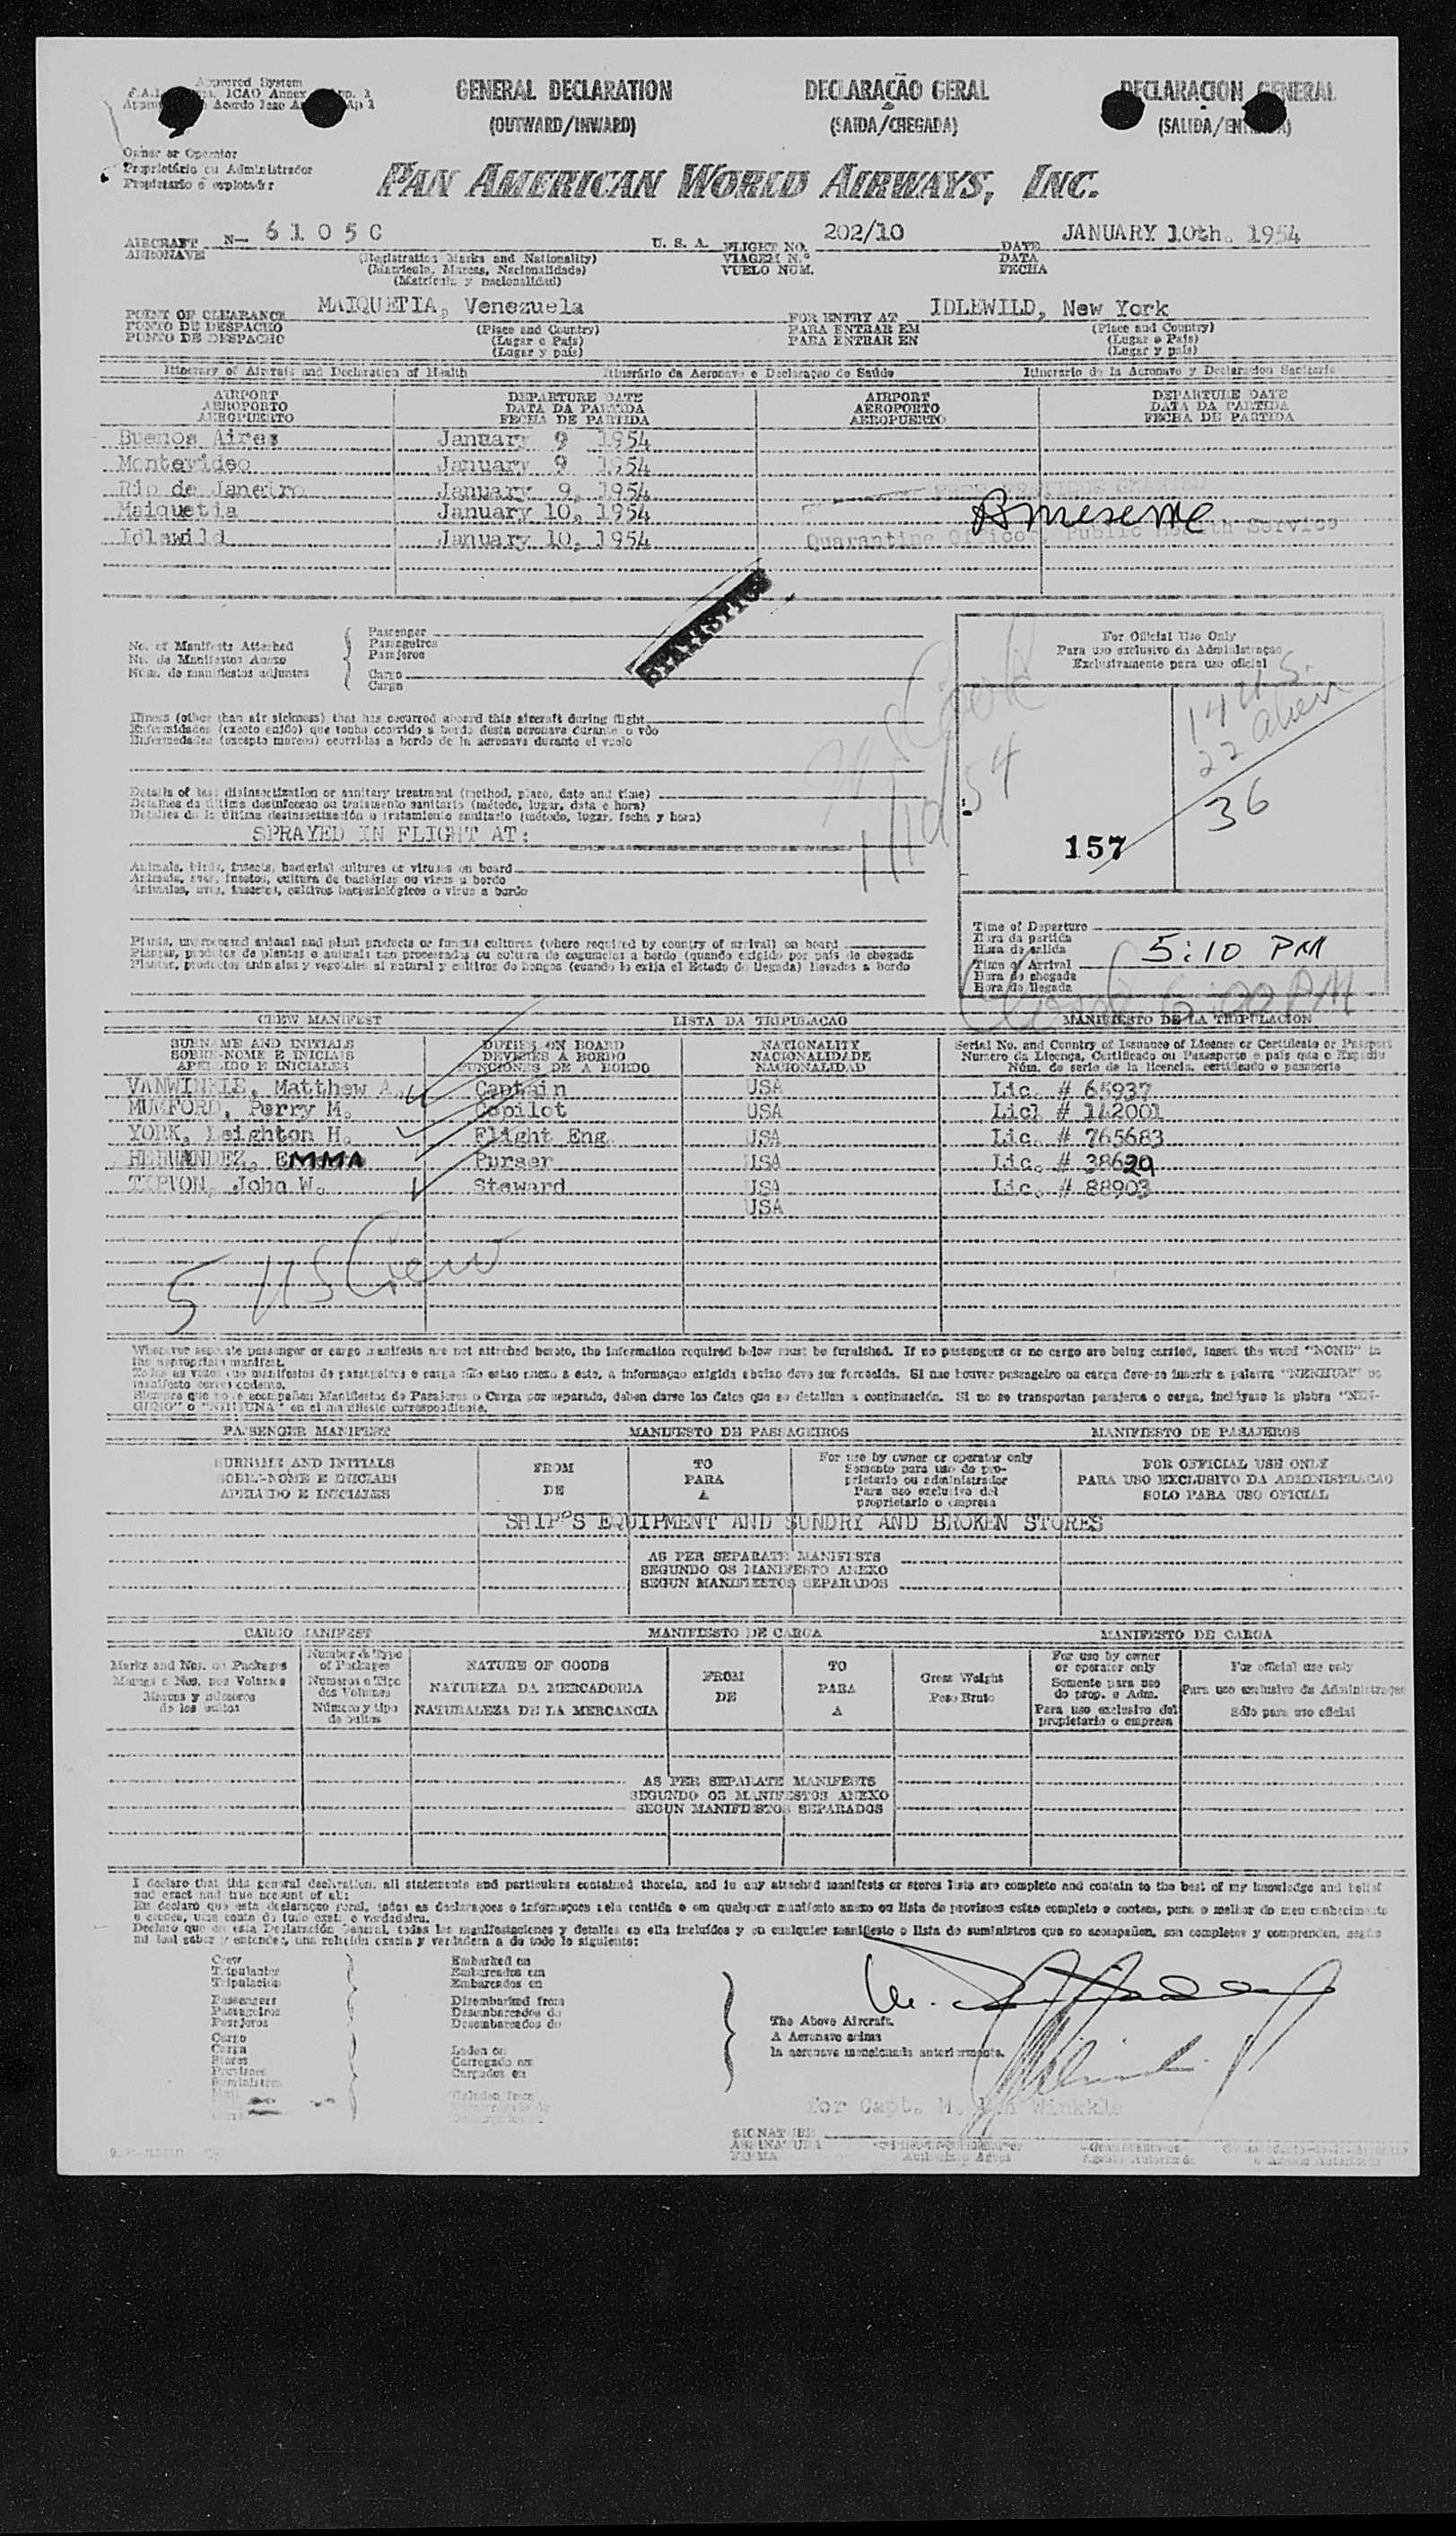 Approved System
GENERAL DECLARATION
(OUTWARD/INWARD)
DECLARAÇÃO GERAL
(SAIDA/CHEGADA)
DECLARACION GENERAL
Owner or Operator
Proprietário ou Administrador
Propietario o explotador
PAN AMERICAN WORLD AIRWAYS, INC.
AIRCRAFT N- 6105C U. S. A. FLIGHT NO. 202/10 DATE JANUARY 10th. 1954
AERONAVE (Registration Marks and Nationality) VIAGEM N.º DATA
(Matricula, Marcas, Nacionalidade) VUELO NÚM. FECHA
(Matrícula y nacionalidad)
POINT OF CLEARANCE MAIQUETIA, Venezuela FOR ENTRY AT IDLEWILD, New York
PONTO DE DESPACHO (Place and Country) PARA ENTRAR EM (Place and Country)
PUNTO DE DESPACHO (Lugar e País) PARA ENTRAR EN (Lugar e País)
(Lugar y país) (Lugar y país)
Itinerary of Aircraft and Declaration of Health Itinerário da Aeronave e Declaraçao de Saúde Itinerario de la Aeronave y Declaracion Sanitaria
AIRPORT DEPARTURE DATE AIRPORT DEPARTURE DATE
AEROPORTO DATA DA PARTIDA AEROPORTO DATA DA PARTIDA
AEROPUERTO FECHA DE PARTIDA AEROPUERTO FECHA DE PARTIDA
Buenos Aires January 9 1954
Montevideo January 9 1954
Rio de Janeiro January 9, 1954
Maiquetia January 10, 1954
Idlewild January 10, 1954
Quarantine Officer, Public Health Service
STATISTICS
No. of Manifests Attached
No. de Manifestos Anexo
Núm. de manifiestos adjuntos
Passenger
Passageiros
Pasajeros
Cargo
Carga
For Official Use Only
Para uso exclusivo da Administraçao
Exclusivamente para uso oficial
14 U.S.
22 alien
36
157
1/10/54
Illness (other than air sickness) that has occurred aboard this aircraft during flight
Enfermidades (exceto enjôo) que tenha ocorrido a bordo desta aeronave durante o vôo
Enfermedades (excepto mareos) ocurridas a bordo de la aeronave durante el vuelo
Details of last disinsectization or sanitary treatment (method, place, date and time)
Detalhes da última desinfeccao ou tratamento sanitario (metodo, lugar, data e hora)
Detalles de la última desinsectización o tratamiento sanitario (método, lugar, fecha y hora)
SPRAYED IN FLIGHT AT:
Animals, birds, insects, bacterial cultures or viruses on board
Animais, aves, insetos, cultura de bactérias ou virus a bordo
Animales, aves, insectos, cultivos bacteriológicos o virus a bordo
Plants, unprocessed animal and plant products or fungus cultures (where required by country of arrival) on board
Plantas, produtos de plantas e animais nao processados ou cultura de cogumelos a bordo (quando exigido por pais de chegada
Plantas, productos animales y vegetales al natural y cultivos de hongos (cuando lo exija el Estado de llegada) llevados a bordo
Time of Departure
Hora da partida
Hora de salida
Time of Arrival 5:10 PM
Hora de chegada
Hora de llegada
6:00 PM
CREW MANIFEST LISTA DA TRIPULACAO MANIFIESTO DE LA TRIPULACION
SURNAME AND INITIALS DUTIES ON BOARD NATIONALITY Serial No. and Country of Issuance of License or Certificate or Passport
SOBRE-NOME E INICIAIS DEVERES A BORDO NACIONALIDADE Numero da Licença, Certificado ou Passaporte e pais que o Expediu
APELLIDO E INICIALES FUNCIONES DE A BORDO NACIONALIDAD Núm. de serie de la licencia, certificado o pasaporte
VANWINKLE, Matthew A. Captain USA Lic. # 65937
MUMFORD, Perry M. Copilot USA Lic! # 142001
YORK, Leighton H. Flight Eng. USA Lic. # 765683
HERNANDEZ, EMMA Purser USA Lic. # 38629
TIPTON, John W. Steward USA Lic. # 88903
USA
5 US Crew
Whenever separate passenger or cargo manifests are not attached hereto, the information required below must be furnished. If no passengers or no cargo are being carried, insert the word "NONE" in
the appropriate manifest.
Todas as vezes que manifestos de passageiros e carga não estao anexo a este, a informaçao exigida abaixo deve ser fornecida. Si nao houver passageiro ou carga deve-se inserir a palavra "NENHUM" no
manifesto correspondente.
Siempre que no se acompañen Manifiestos de Pasajeros o Carga por separado, deben darse los datos que se detallan a continuación. Si no se transportan pasajeros o carga, inclúyase la plabra "NIN-
GUNO" o "NINGUNA" en el manifiesto correspondiente.
PASSENGER MANIFEST MANIFESTO DE PASSAGEIROS MANIFIESTO DE PASAJEROS
SURNAME AND INITIALS FROM TO For use by owner or operator only FOR OFFICIAL USE ONLY
SOBRE-NOME E INICIAIS DE PARA Somente para uso do pro- PARA USO EXCLUSIVO DA ADMINISTRACAO
APELLIDO E INICIALES A prietario ou administrador SOLO PARA USO OFICIAL
Para uso exclusivo del
proprietario o empresa
SHIP'S EQUIPMENT AND SUNDRY AND BROKEN STORES
AS PER SEPARATE MANIFESTS
SEGUNDO OS MANIFESTO ANEXO
SEGUN MANIFIESTOS SEPARADOS
CARGO MANIFEST MANIFIESTO DE CARGA MANIFESTO DE CARGA
Marks and Nos. on Packages
Marcas e Nos. nos Volumes
Marcas y números
de los bultos
Number & Type
of Packages
Numeros e Tipo
dos Volumes
Número y tipo
de bultos
NATURE OF GOODS
NATUREZA DA MERCADORIA
NATURALEZA DE LA MERCANCIA
FROM
DE
TO
PARA
A
Gross Weight
Peso Bruto
For use by owner
or operator only
Somente para uso
do prop. e Adm.
Para uso exclusivo del
propietario o empresa
For official use only
Para uso exclusivo da Administraçao
Sólo para uso oficial
AS PER SEPARATE MANIFESTS
SEGUNDO OS MANIFESTOS ANEXO
SEGUN MANIFIESTOS SEPARADOS
I declare that this general declaration, all statements and particulars contained therein, and in any attached manifests or stores lists are complete and contain to the best of my knowledge and belief
and exact and true account of all:
Eu declaro que esta declaraçao geral, todas as declaraçoes e informaçoes nela contida e em qualquer manifesto anexo ou lista de provisoes estao completo e contem, para o melhor do meu conhecimento
e crença, uma conta de tudo exata e verdadeira.
Declaro que en esta Declaración General, todas las manifestaciones y detalles en ella incluídos y en cualquier manifiesto o lista de suministros que se acompañen, son completos y comprenden, según
mi leal saber y entender, una relación exacta y verdadera a de todo lo siguiente:
Crew
Tripulantes
Tripulación
Passengers
Passageiros
Pasajeros
Cargo
Carga
Stores
Provisoes
Suministros
Embarked on
Embarcados em
Embarcados en
Disembarked from
Desembarcados do
Desembarcados de
Laden on
Carregado em
Cargados en
The Above Aircraft.
A Aeronave acima
la aeronave mencionada anteriormente.
for Capt. M. Van Winkkle
SIGNATURE
ASSINATURA
FIRMA